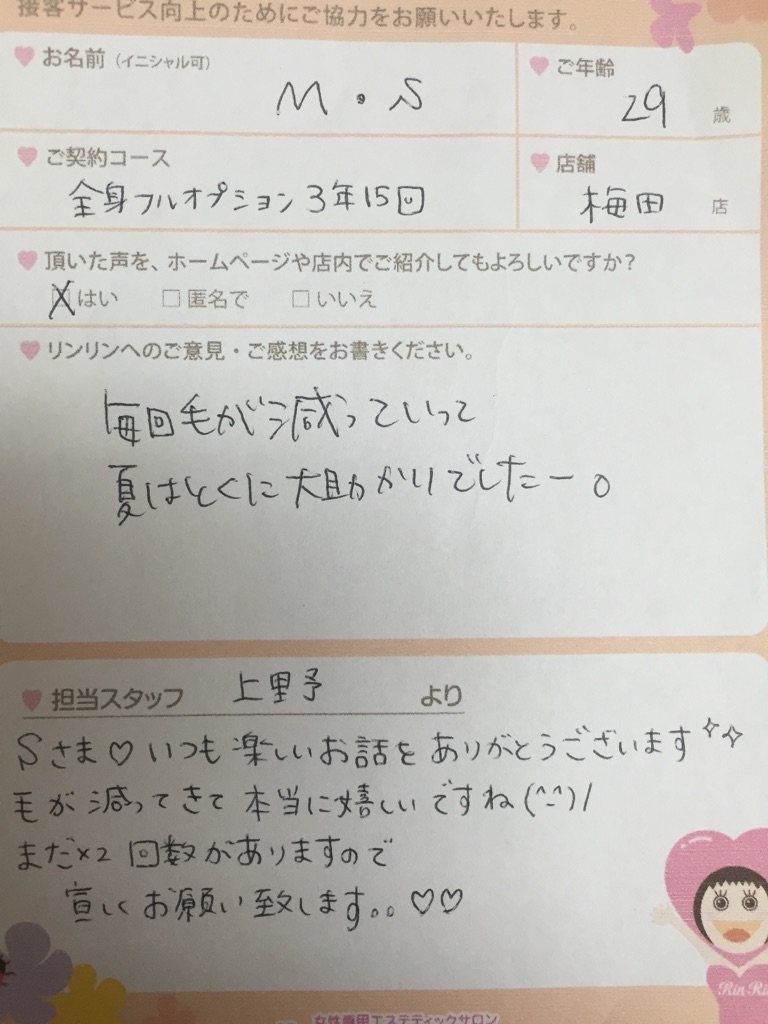 接客サービス向上のためにご協力をお願いいたします。
お名前（イニシャル可）
M・S
ご年齢
29 歳
ご契約コース
全身フルオプション3年15回
店舗
梅田 店
頂いた声を、ホームページや店内でご紹介してもよろしいですか？
はい □匿名で □いいえ
リンリンへのご意見・ご感想をお書きください。
毎回毛が減っていって
夏はとくに大助かりでしたー。
担当スタッフ 上野 より
Sさま♡いつも楽しいお話をありがとうございます
毛が減ってきて本当に嬉しいですね(^-^)/
まだ×2回数がありますので
宜しくお願い致します。。♡♡
Rin Ri
女性専用エステティックサロン